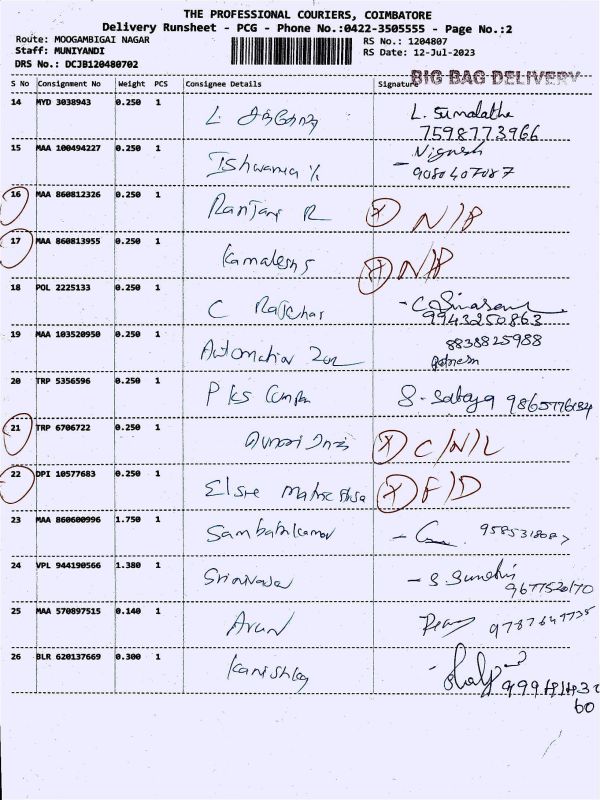 THE PROFESSIONAL COURIERS, COIMBATORE
Delivery Runsheet - PCG - Phone No.:0422-3505555 - Page No.:2
Route: MOOGAMBIGAI NAGAR RS No.: 1204807
Staff: MUNIYANDI RS Date: 12-Jul-2023
DRS No.: DCJB120480702
BIG BAG DELIVERY
S No Consignment No Weight PCS Consignee Details Signature
14 MYD 3038943 0.250 1 L. Sumalatha
7598773966
15 MAA 100494227 0.250 1 Ishwarya Vignesh
9080407087
16 MAA 860812326 0.250 1 Ranjani R X N/A
17 MAA 860813955 0.250 1 Kamalesh S X N/A
18 POL 2225133 0.250 1 C
9943250863
19 MAA 103520950 0.250 1 Automation 8838825988
20 TRP 5356596 0.250 1 P KS S.
21 TRP 6706722 0.250 1 X C/N/L
22 DPI 10577683 0.250 1 X F/D
23 MAA 860600996 1.750 1 Sambathkumar
24 VPL 944190566 1.380 1 Srinivasan - S.
9677520170
25 MAA 570897515 0.140 1 Arun 9787649735
26 BLR 620137669 0.300 1 Kanishka
60